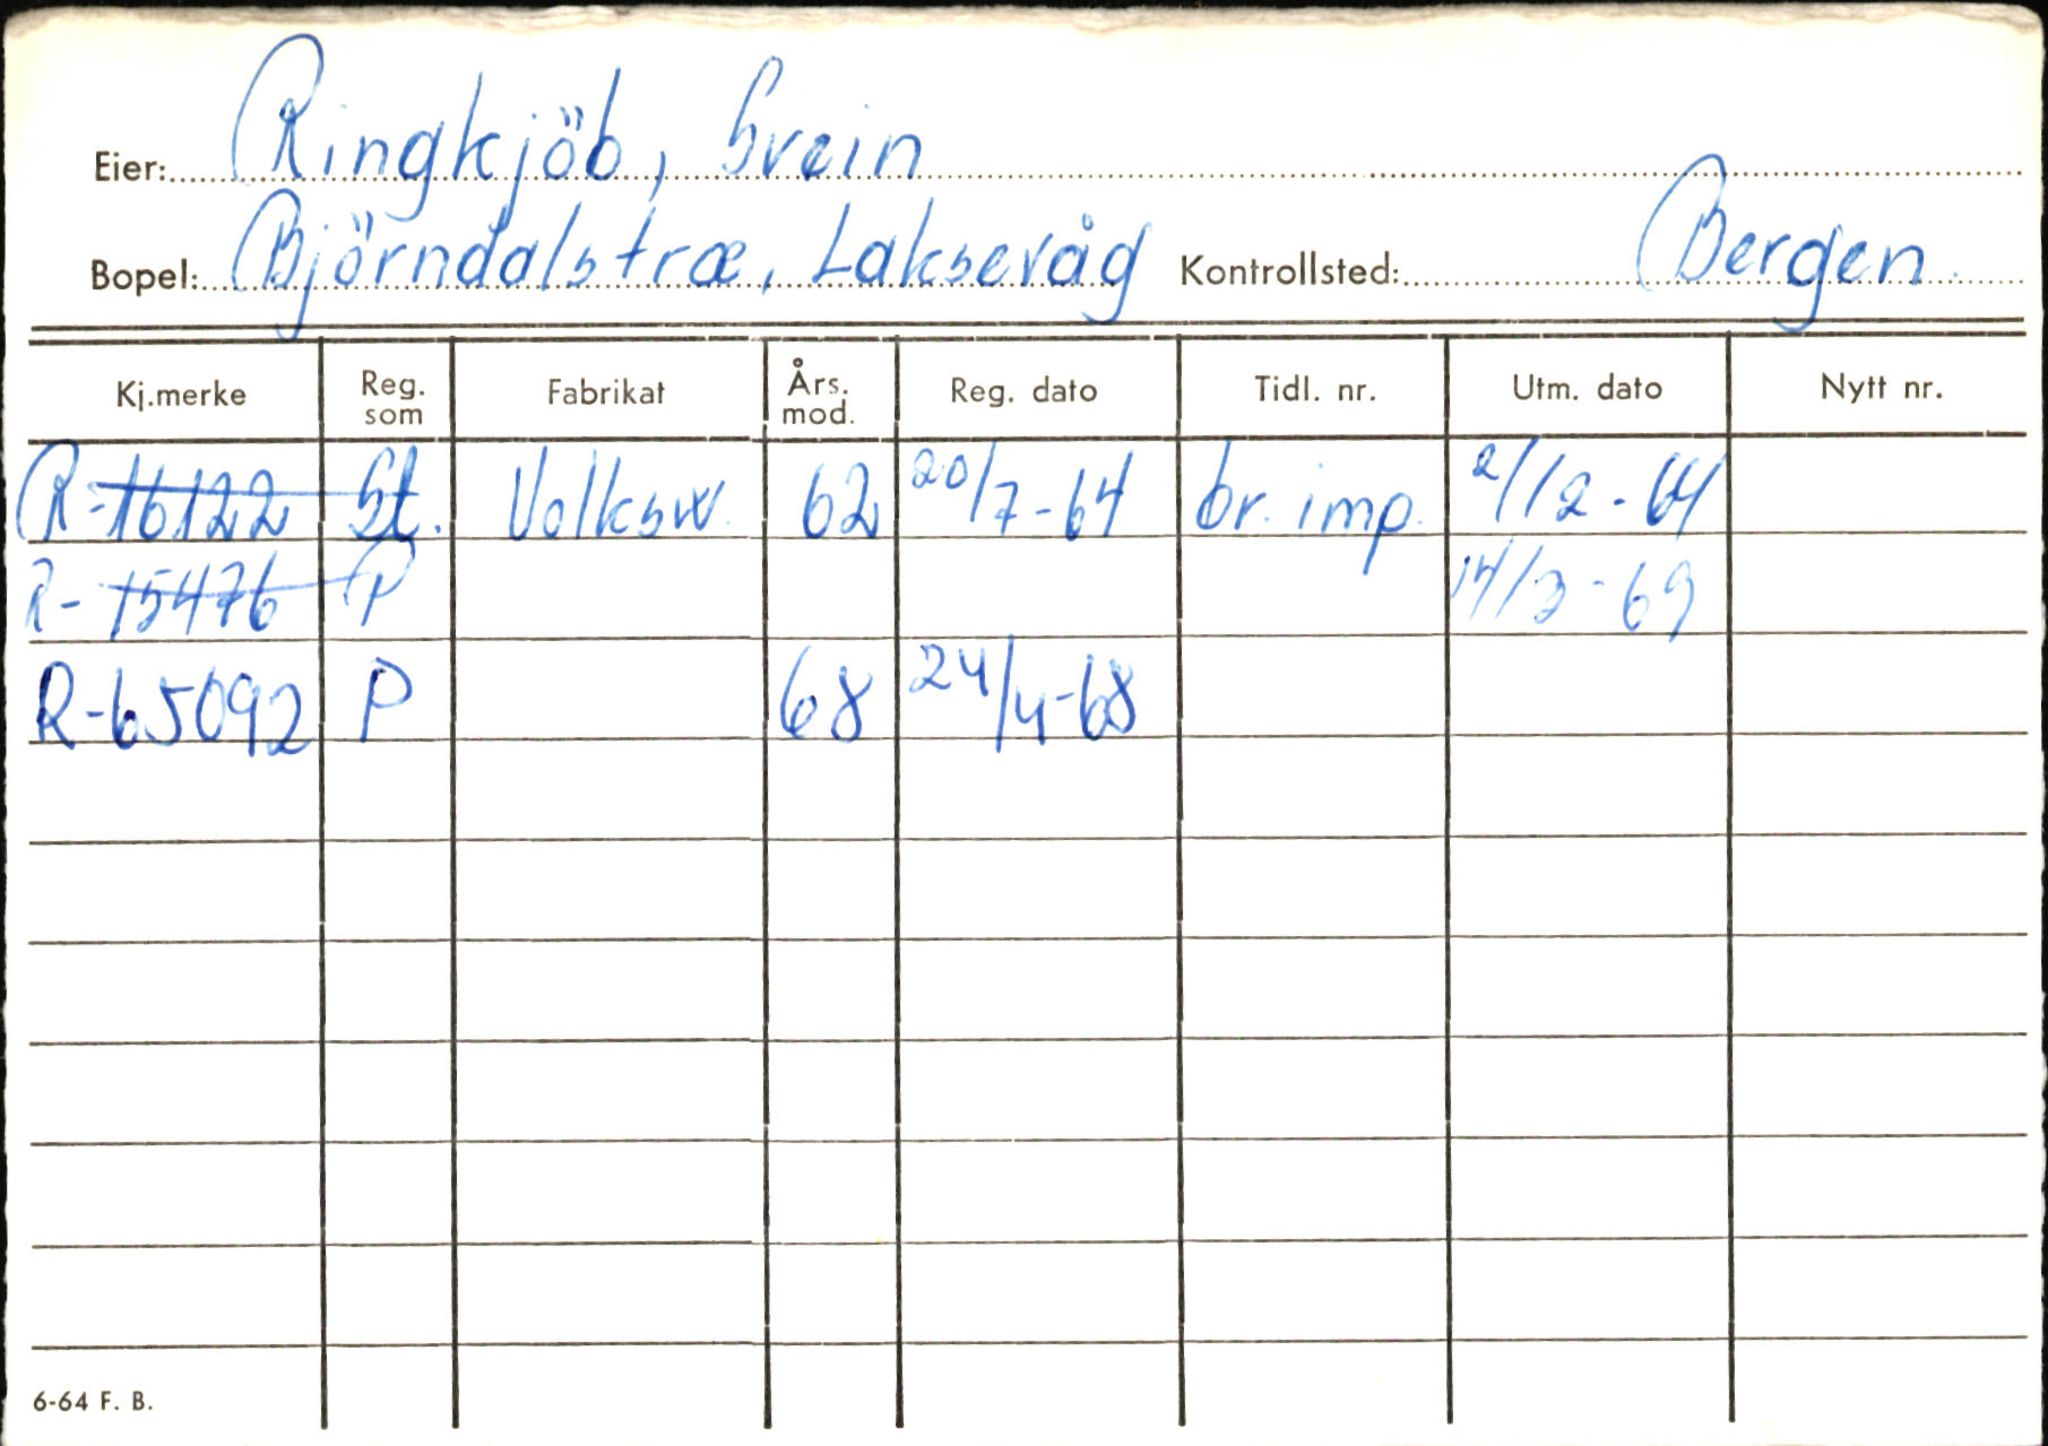 Eier: Ringkjöb, Svein
Bopel: Björndalstræ, Laksevåg Kontrollsted: Bergen.
Kj.merke Reg. som Fabrikat Års. mod. Reg. dato Tidl. nr. Utm. dato Nytt nr.
R-16122 St. Volksw. 62 20/7-64 br. imp. 2/12-64
R-15476 P 14/3-69
R-65092 P 68 24/4-68
6-64 F. B.